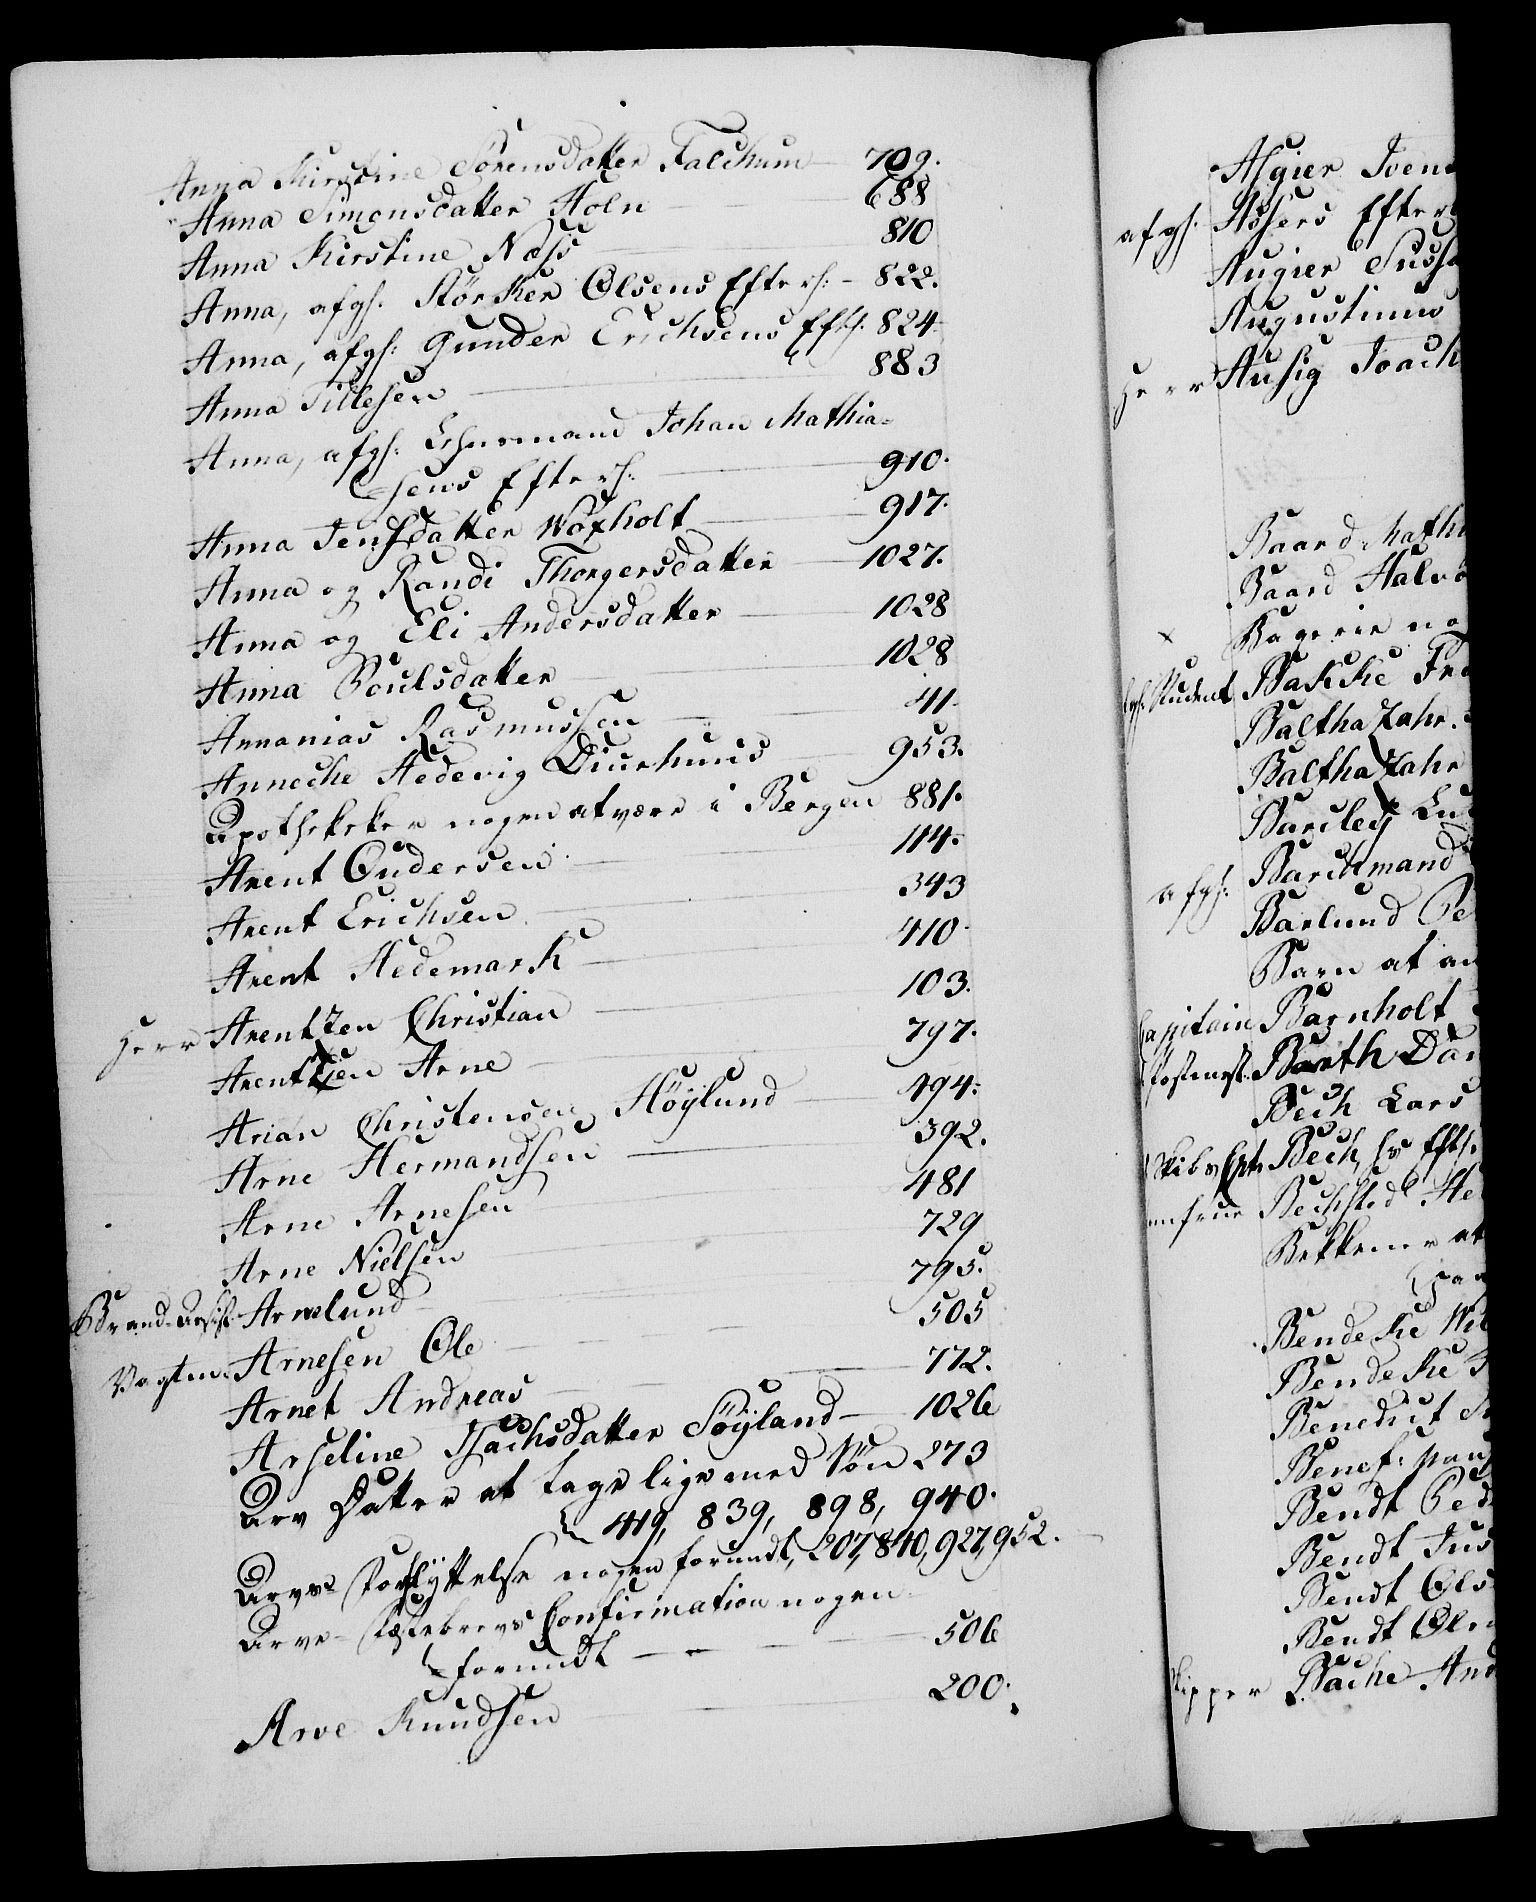 Anna Kirstine Sörensdatter Falchum 709.
Anna Simonsdatter Holn 688
Anna Kirstine Næss 810
Anna, afgl: Störker Olsens Efterl: - 822.
Anna, afgl: Gunder Erichsens Eftl: 824.
Anna Tillesen 883
Anna, afgl: Johan Mathia=
sens Efterl: 910.
Anna Jensdatter Woxholt 917.
Anna og Randi Thorgersdatter 1027.
Anna og Eli Andersdatter 1028
Anna Poulsdatter 1028
Annanias Rasmussen 41.
Anneche Hedevig Diurhuus 953.
Apotheker nogen at være i Bergen 881.
Arent Gudersen 114.
Arent Erichsen 343
Arent Hedemark 410.
Herr Arentzen Christian 103.
Arentzen Arne 797.
Arian Christensen Höylund 494.
Arne Hermandsen 392.
Arne Arnesen 481
Arne Nielsen 729
Brand Arnelund 795.
Vagtm. Arnesen Ole 505
Arnet Andreas 772.
Arseline Isachsdatter Söyland 1026
Arv Datter at tage lige med Sön 273
419, 839, 898, 940.
Arves Forflyttelse nogen forundt, 207, 840, 927, 952.
Arve-Festebrevs Confirmation nogen
forundt 506
Arve Knudsen 200.
Asgier Iven
afgl: Assers Efterl
Augier Suss
Augustinus
Herr Ausig Joach
Baard Mathi
Baard Halvo
x Bagerie no
afgl: Student Bakke Fre
Balthazahr.
Balthazahr
Barcley Lu
afgl: Barchmand
Barlund Pe
Barn at an
Capitain Barnholt
Postmest: Barth Dan
Bech Lars
Skibs Capt Bech, hs Eftl.
Jomfrue Bechsted He
Bekkene at
Bendeke Wil
Bendeke
Benedict
Benef:
Bendt Ped
Bendt Jus
Bendt Ols
Bendt Ols
Skipper Bache And